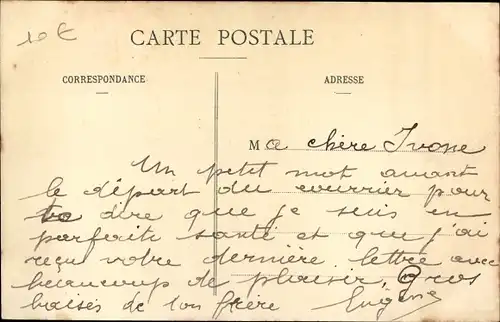 10€
CARTE POSTALE
CORRESPONDANCE
ADRESSE
Ma chère Ivone
Un petit mot avant
le départ du courrier pour
te dire que je suis en
parfaite santé et que j'ai
reçu votre dernière lettre avec
beaucoup de plaisir, Gros
baisés de ton frère Eugène